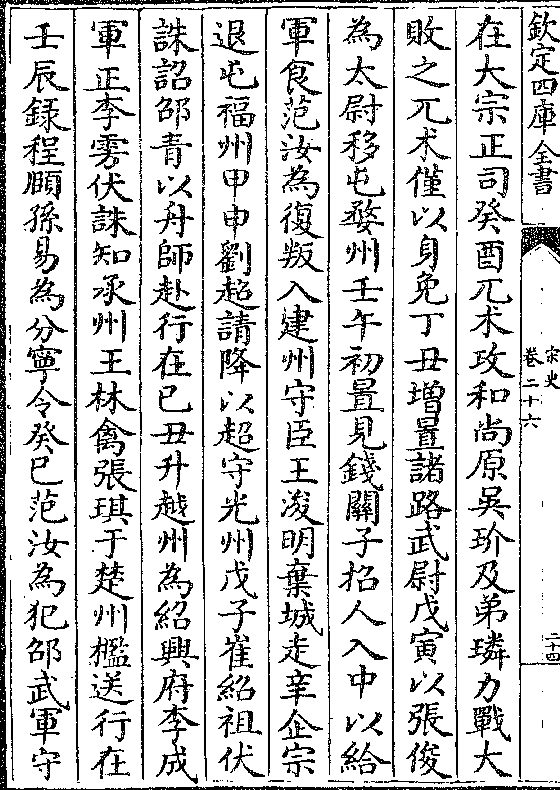 欽定四庫全書
宋史
卷二十六
二十四
在大宗正司癸酉兀术攻和尚原吳玠及弟璘力戰大
敗之兀术僅以身免丁丑增置諸路武尉戊寅以張俊
為太尉移屯婺州壬午初置見錢關子招人入中以給
軍食范汝為復叛入建州守臣王浚明棄城走辛企宗
退屯福州甲申劉超請降以超守光州戊子崔紹祖伏
誅詔邵青以舟師赴行在已丑升越州為紹興府李成
軍正李雱伏誅知承州王林禽張琪于楚州檻送行在
壬辰錄程頤孫易為分寧令癸巳范汝為犯邵武軍守